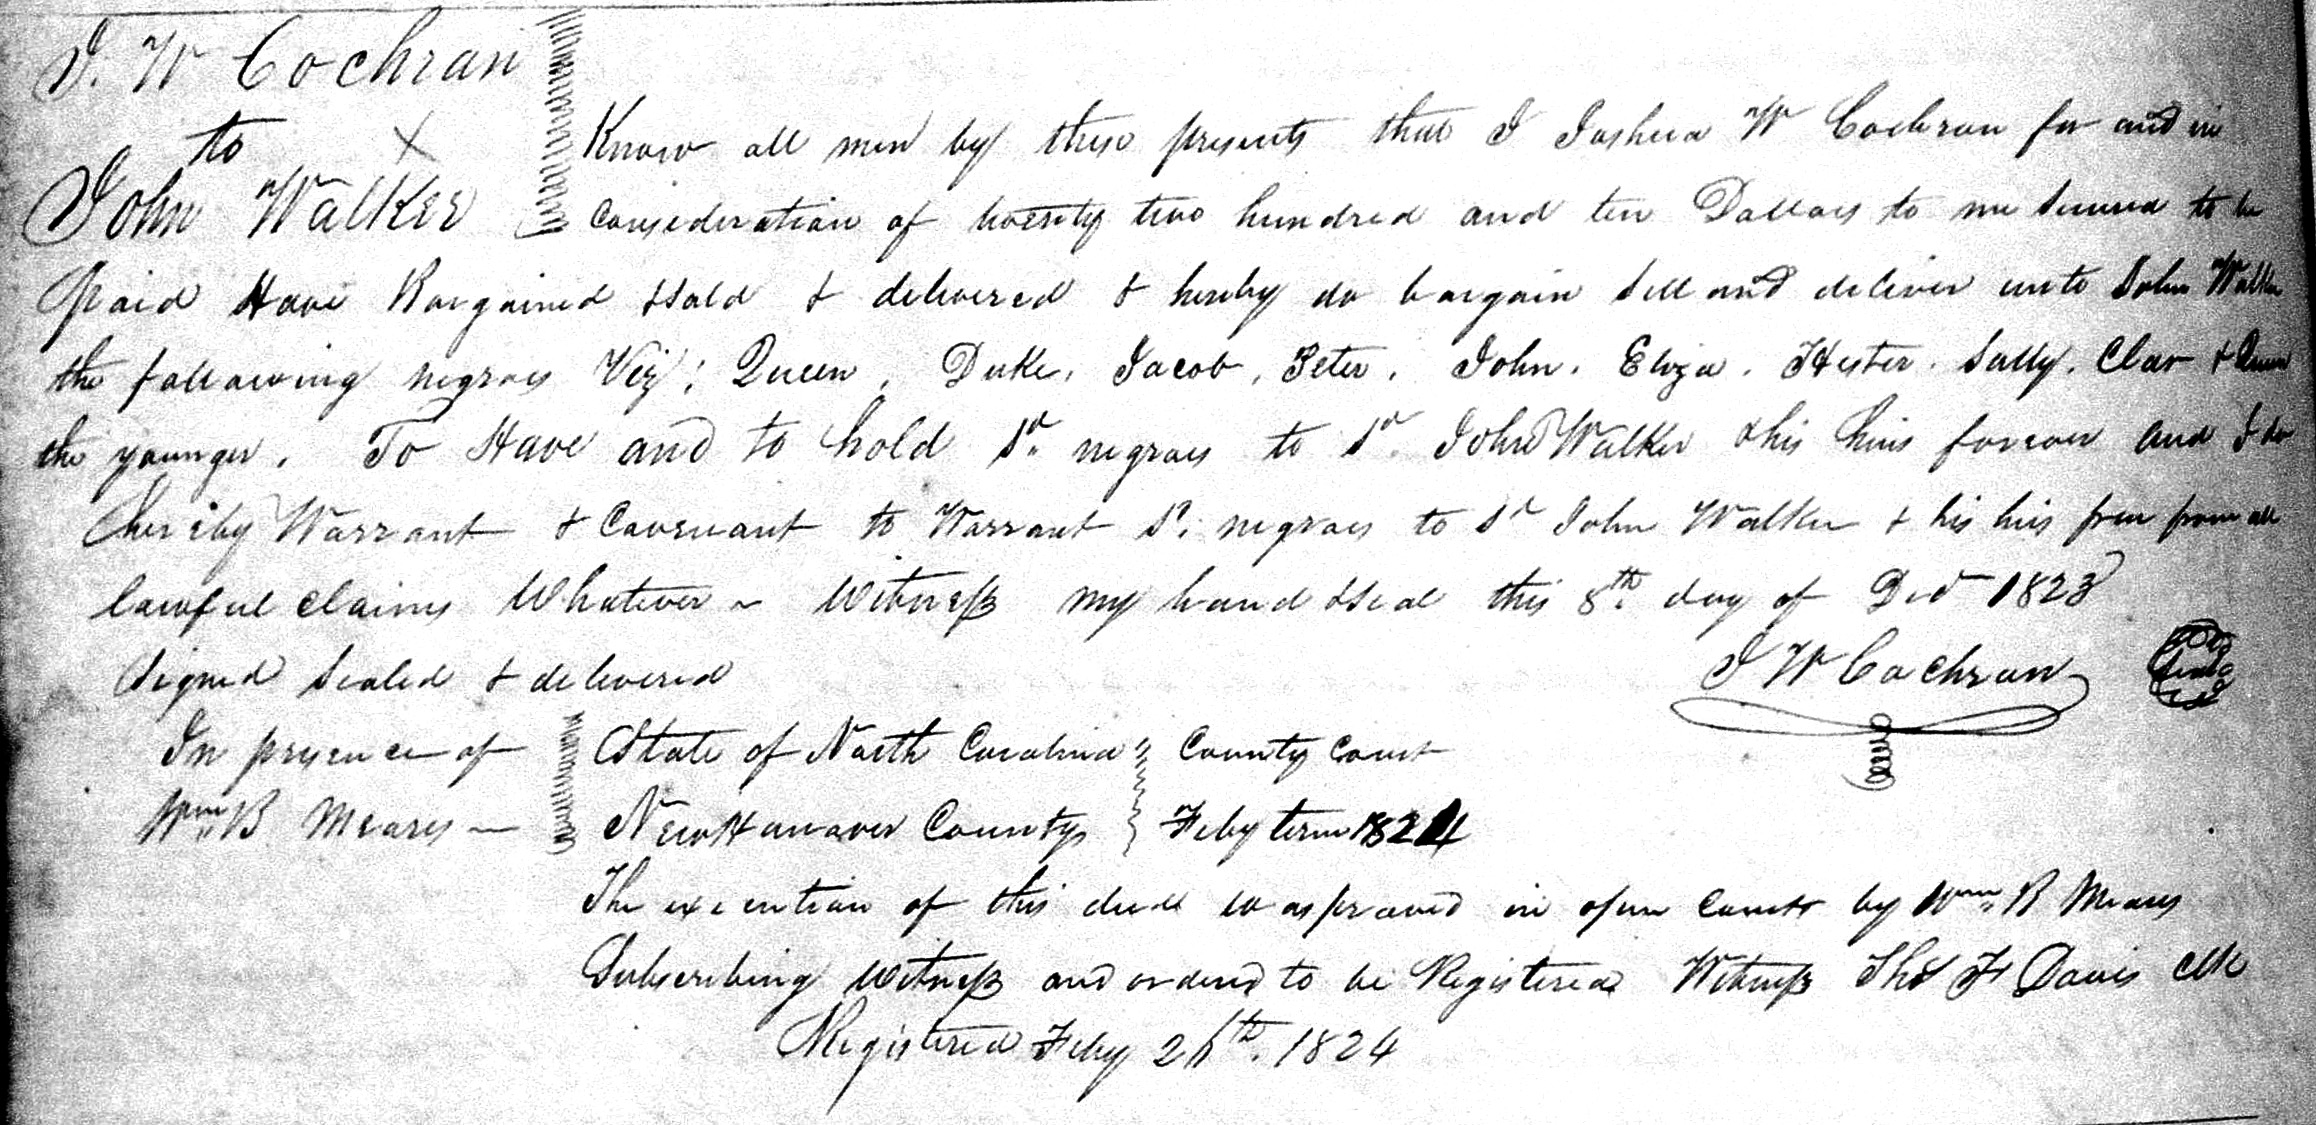 J. W Cochran
to X
John Walker
Know all men by these presents that I Joshua W Cochran for and in
consideration of twenty two hundred and ten Dollars to me secured to be
Paid Have Bargained & Sold & delivered & hereby do bargain sell and deliver unto John Walker
the following negroes Viz: Queen, Duke, Jacob, Peter, John, Eliza, Hester, Sally, Clar & Queen
the younger. To Have and to hold sd. negroes to sd. John Walker & his heirs forever and I do
hereby Warrant & Covenant to Warrant sd. negroes to sd John Walker & his heirs free from all
lawful claims Whatever ~ Witness my hand & Seal this 8th. day of Decr 1823
Signed Sealed & delivered J W Cochran Seal
In presence of State of North Carolina County Court
Wm B Meares — New Hanover County Feby term 1824
The execution of this deed was proved in open Court by Wm B Meares
Subscribing Witness and ordered to be Registered Witness Tho F Davis Clk
Registered Feby 26th. 1824